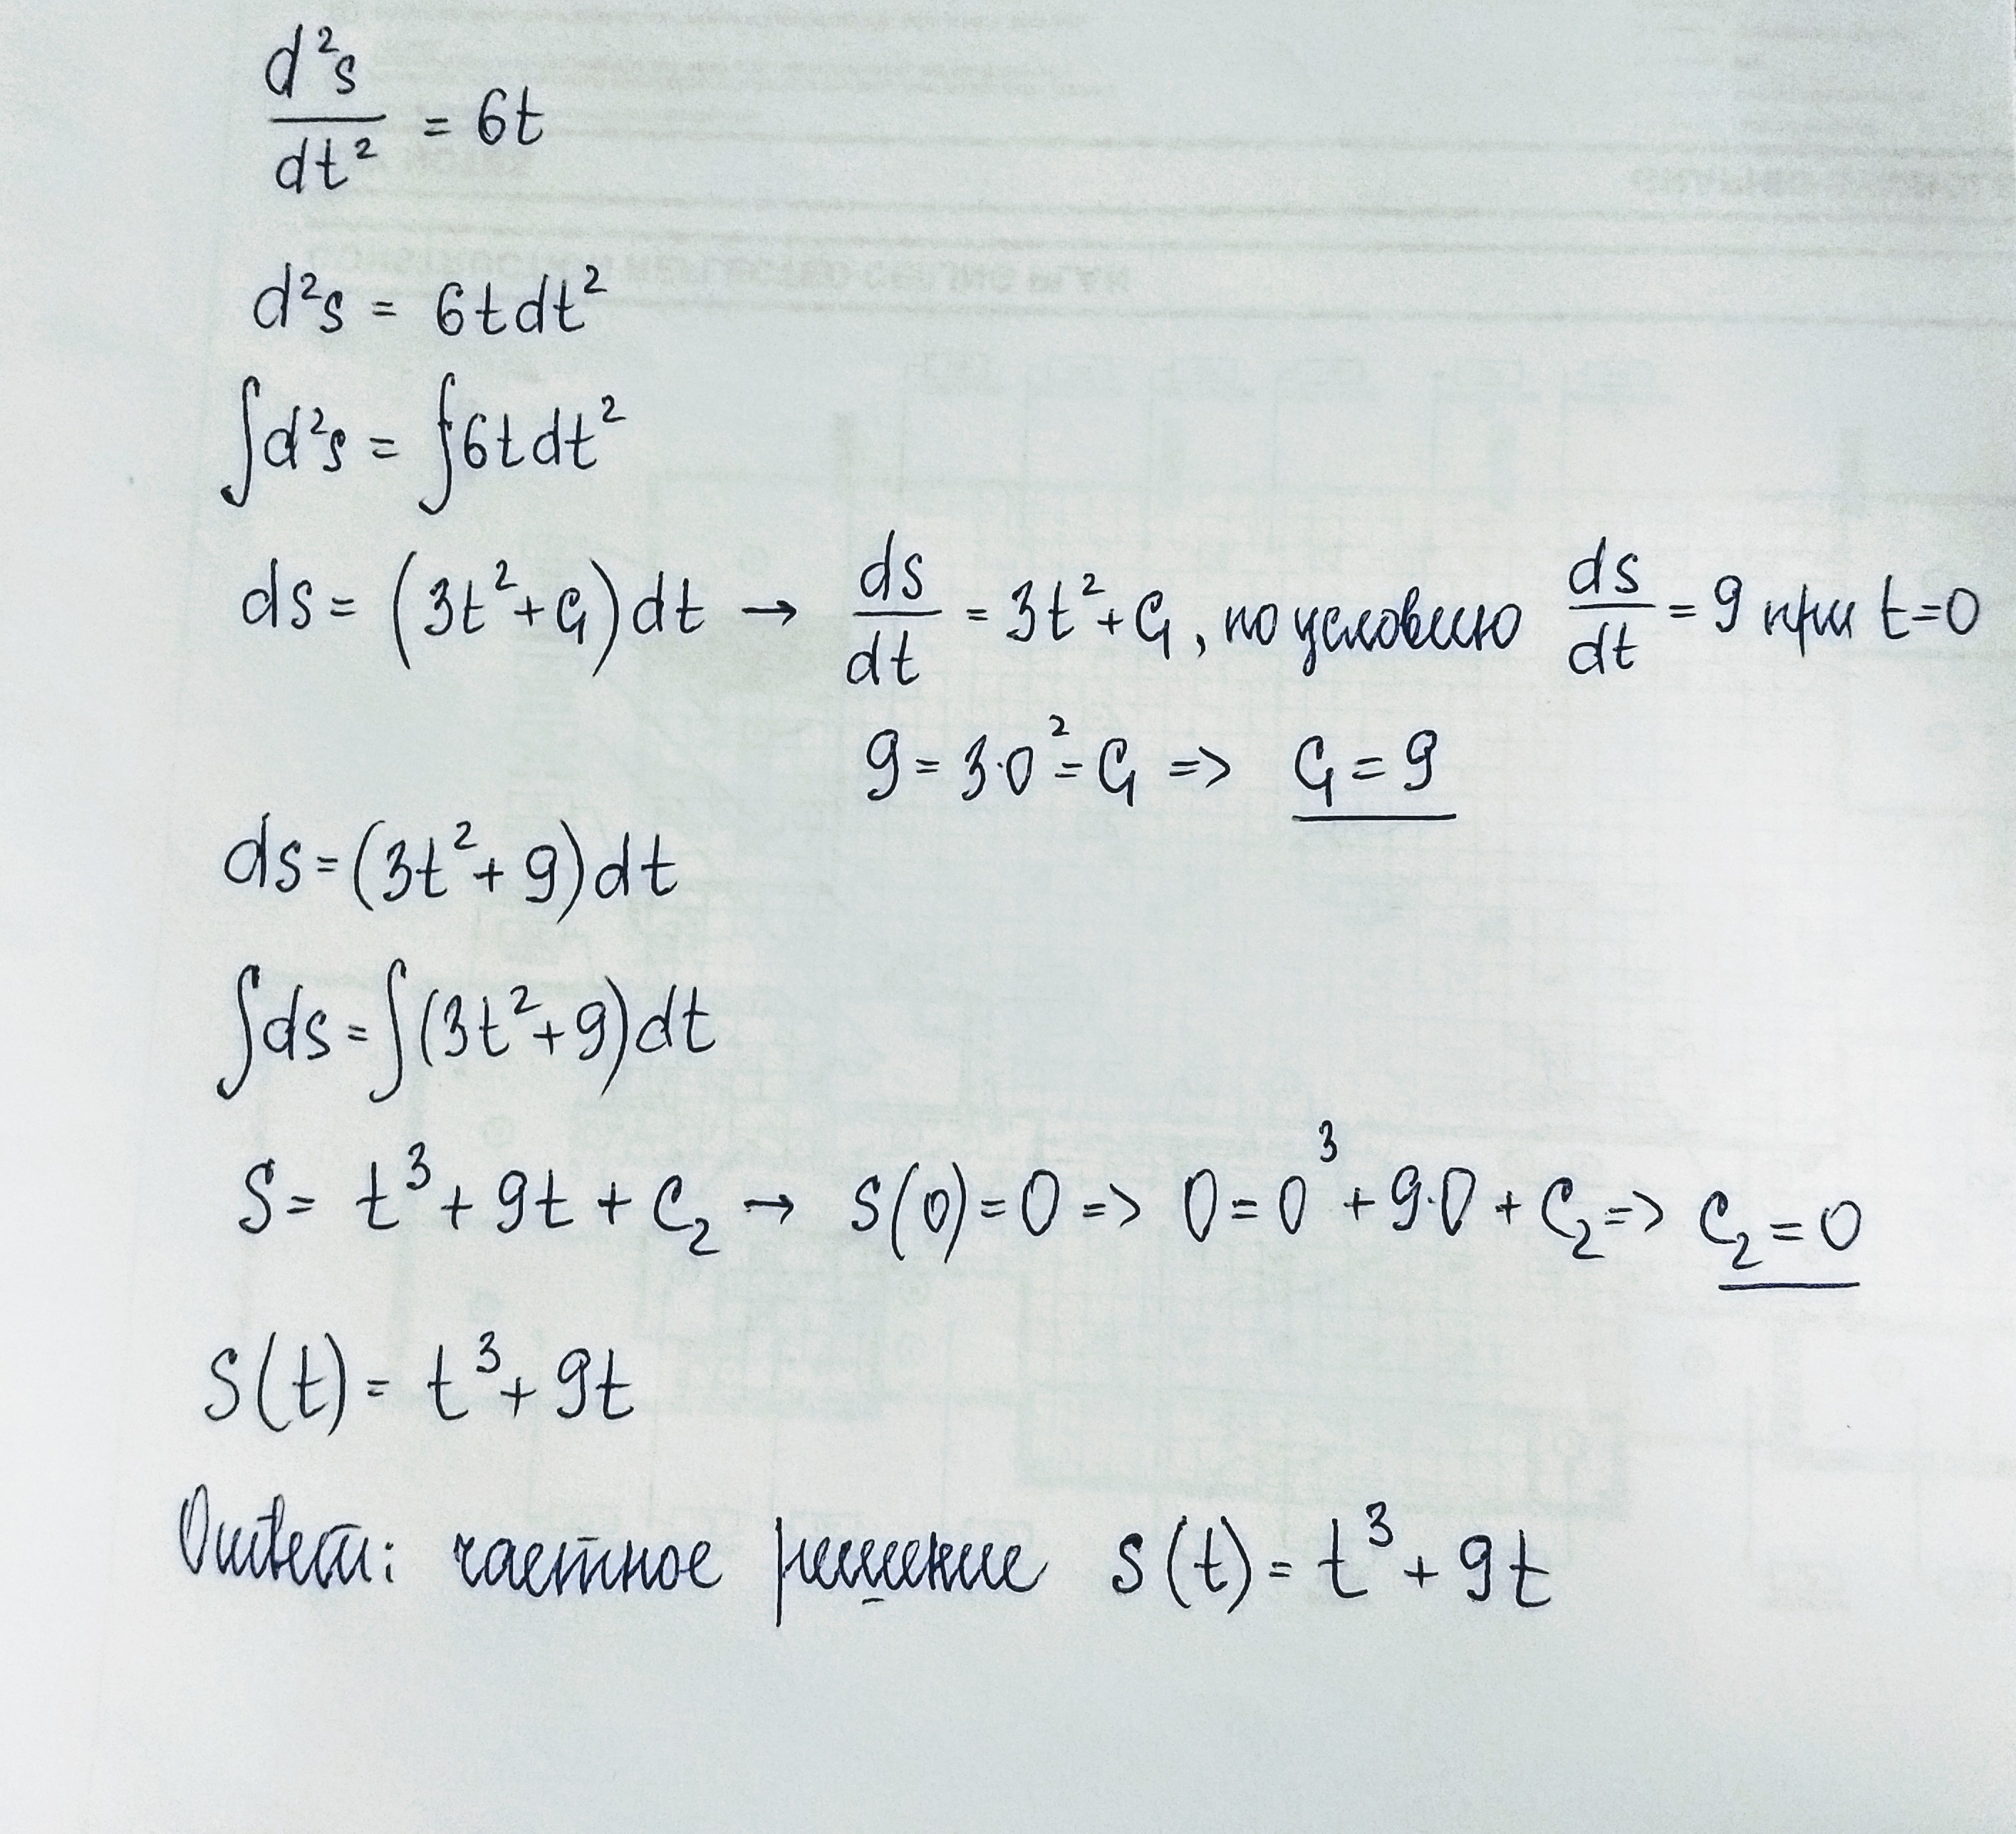 d²s/dt² = 6t
d²s = 6tdt²
∫d²s = ∫6tdt²
ds = (3t²+C₁)dt → ds/dt = 3t²+C₁, по условию ds/dt = 9 при t=0
9 = 3·0² = C₁ => C₁ = 9
ds = (3t²+9)dt
∫ds = ∫(3t²+9)dt
S = t³ + 9t + C₂ → s(0) = 0 => 0 = 0³ + 9·0 + C₂ => C₂ = 0
S(t) = t³ + 9t
Ответ: частное решение s(t) = t³ + 9t